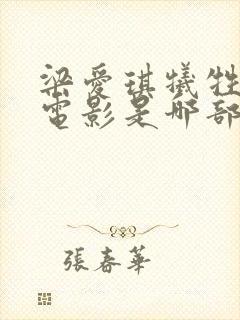 梁愛琪犧牲
電影是哪部
張春華